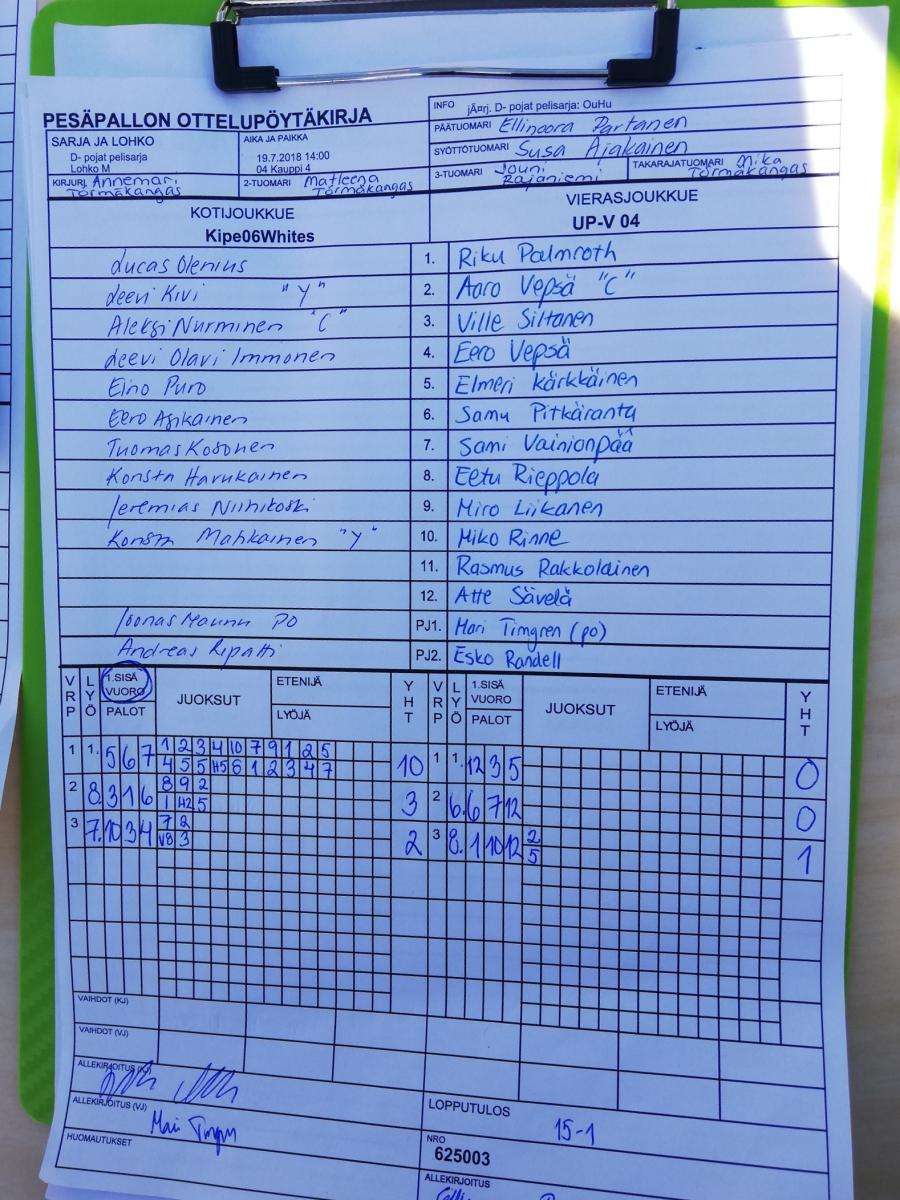 PESÄPALLON OTTELUPÖYTÄKIRJA
INFO jÃ¤rj. D- pojat pelisarja: OuHu
PÄÄTUOMARI Ellinoora Partanen
SYÖTTÖTUOMARI Susa Ajakainen
3-TUOMARI Jouni Rajaniemi
TAKARAJATUOMARI Mika Törmäkangas
SARJA JA LOHKO
D- pojat pelisarja
Lohko M
AIKA JA PAIKKA
19.7.2018 14:00
04 Kauppi 4
KIRJURI Annemari Törmäkangas
2-TUOMARI Matleena Törmäkangas
KOTIJOUKKUE
Kipe06Whites
VIERASJOUKKUE
UP-V 04
Lucas Olenius 1. Riku Palmroth
Leevi Kivi "Y" 2. Aaro Vepsä "C"
Aleksi Nurminen "C" 3. Ville Siltanen
Leevi Olavi Immonen 4. Eero Vepsä
Eino Puro 5. Elmeri Kärkkäinen
Eero 6. Samu Pitkäranta
Tuomas Kosonen 7. Sami Vainionpää
Konsta 8. Eetu Rieppola
Jeremias 9. Miro Liikanen
Konsta "Y" 10. Miko Rinne
11. Rasmus Rakkolainen
12. Atte Sävelä
Joonas Maunu PO PJ1. Mari Timgren (po)
Andreas Ripatti PJ2. Esko Randell
VRP LYÖ 1.SISÄ VUORO PALOT JUOKSUT ETENIJÄ LYÖJÄ YHT VRP LYÖ 1.SISÄ VUORO PALOT JUOKSUT ETENIJÄ LYÖJÄ YHT
1 1. 5 6 7 1 2 3 4 10 7 9 1 2 5 10 1 1. 12 3 5 0
4 5 5 H5 6 1 2 3 4 7
2 8. 3 1 6 8 9 2 3 2 6. 6 7 12 0
1 H2 5
3 7. 10 3 4 7 2 2 3 8. 1 10 12 2 1
V8 3 5
VAIHDOT (KJ)
VAIHDOT (VJ)
ALLEKIRJOITUS (KJ)
ALLEKIRJOITUS (VJ)
HUOMAUTUKSET
LOPPUTULOS
15-1
NRO
625003
ALLEKIRJOITUS